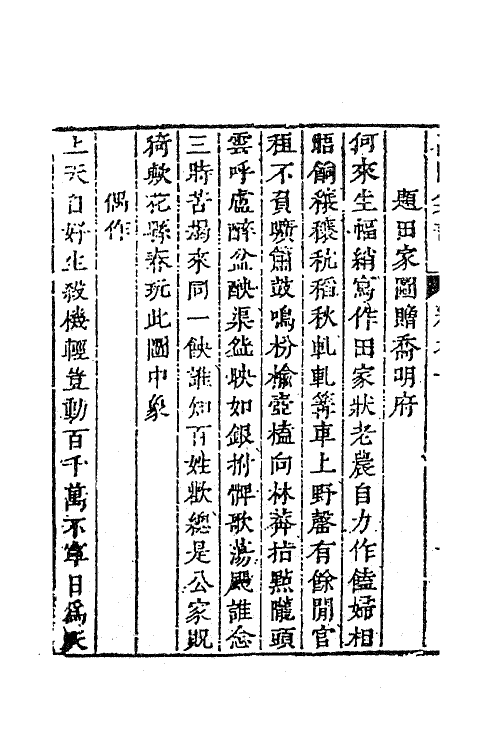 題田家圖贈喬明府
何來生福綃寫作田家狀老農自力作饁婦相
䣺餉穰穰秔稻秋軋軋篝車上野罄有餘閒官
租不負曠簫鼓鳴枌榆壺榼向林莽拈點隴頭
雲呼盧醉盆
渠盎
如銀拊
歌蕩颺誰念
三時苦竭來同一
誰知百姓歡總是公家貺
猗歟花縣春玩此圖中象
偶作
上天自好生殺機輕豈動百千萬不寧日爲